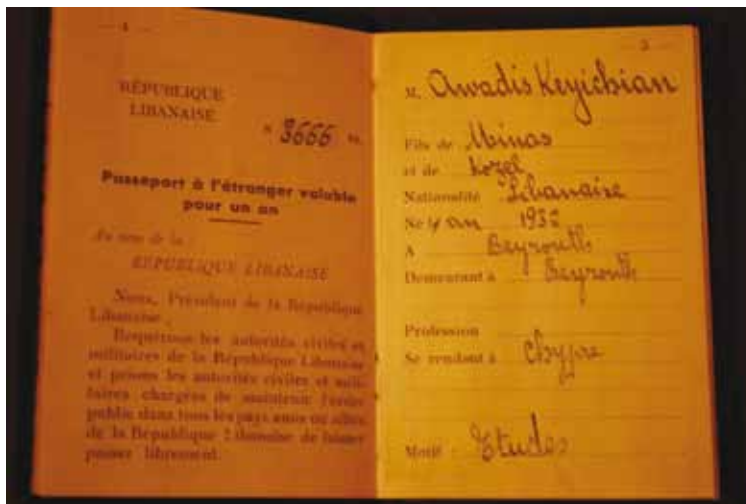 RÉPUBLIQUE
LIBANAISE
N° 3666
Passeport à l'étranger valable
pour un an
Au nom de la :
RÉPUBLIQUE LIBANAISE
Nous, Président de la République
Libanaise,
Requérons les autorités civiles et
militaires de la République Libanaise
et prions les autorités civiles et mili-
taires chargées de maintenir l'ordre
public dans tous les pays amis ou alliés
de la République Libanaise de laisser
passer librement.
3
M. Awadis Keyichian
Fils de Minas
et de Kozel
Nationalité Libanaise
Né 1932
A Beyrouth
Demeurant à Beyrouth
Profession
Se rendant à Chypre
Motif : Etudes